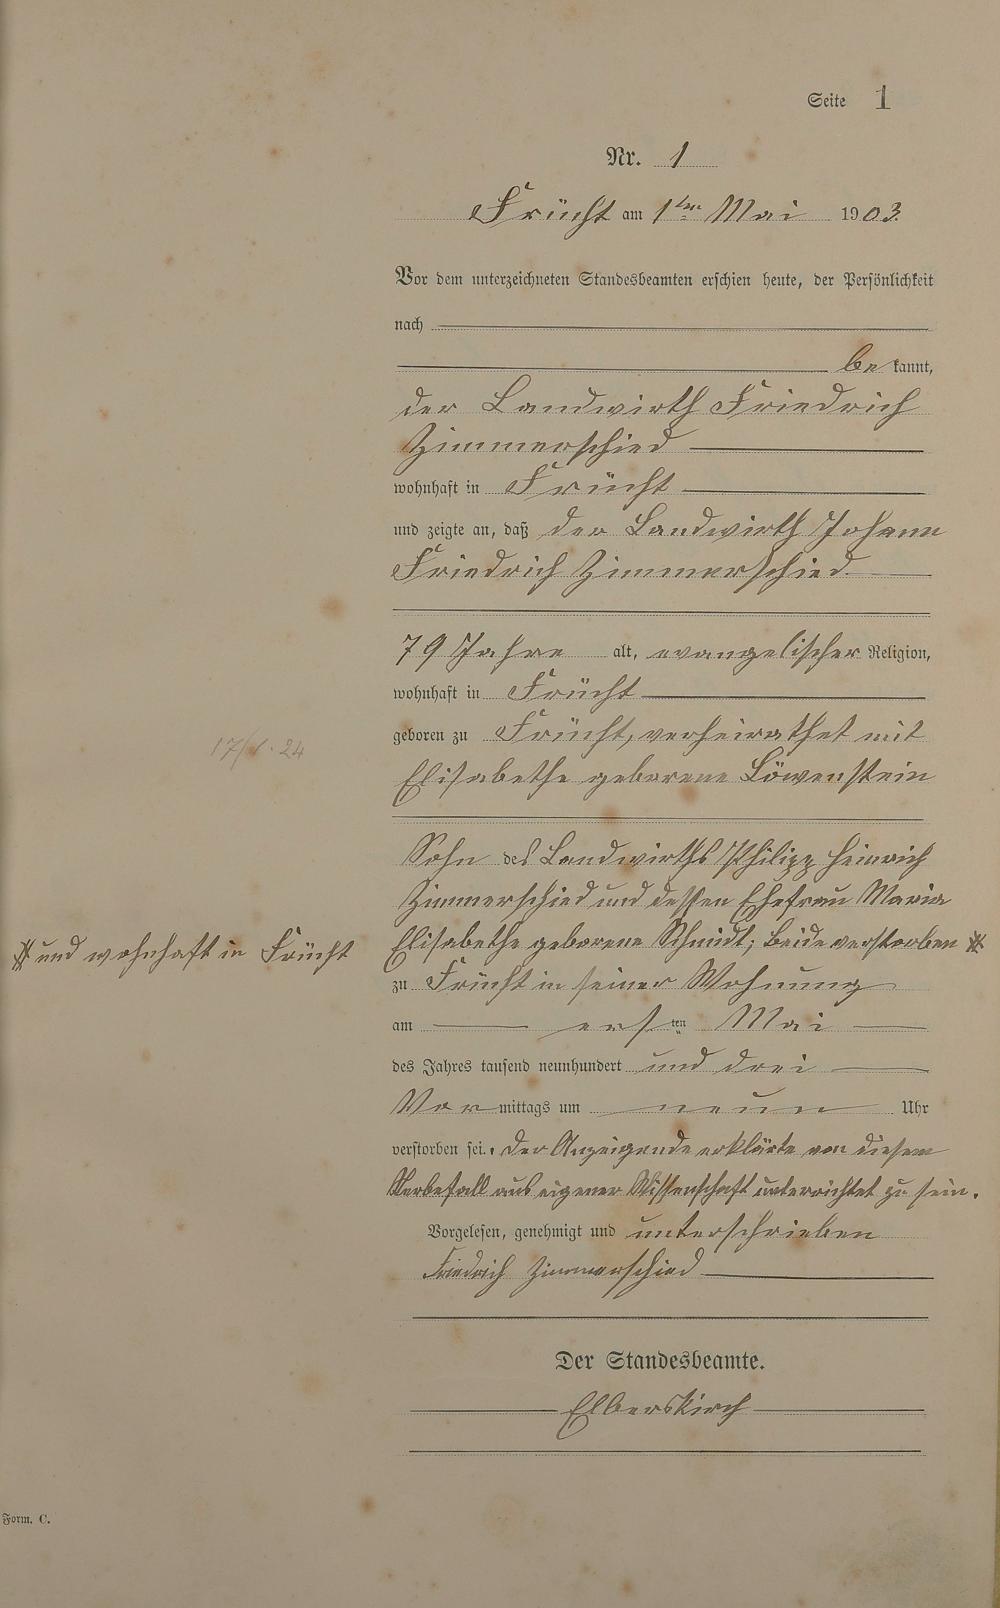 Seite 1
Nr. 1
Frücht am 1ten Mai 1903.
Vor dem unterzeichneten Standesbeamten erschien heute, der Persönlichkeit
nach
bekannt,
der Landwirth Friedrich
Zimmerschied
wohnhaft in Frücht
und zeigte an, daß der Landwirth Johann
Friedrich Zimmerschied
79 Jahre alt, evangelischer Religion,
wohnhaft in Frücht
geboren zu Frücht, verheirathet mit
Elisabethe geborene Löwenstein
17/1.24
Sohn des Landwirths Philipp Heinrich
Zimmerschied und dessen Ehefrau Maria
Elisabethe geborene Schmidt; beide verstorben *
* und wohnhaft in Frücht
zu Frücht in seiner Wohnung
am ersten Mai
des Jahres tausend neunhundert und drei
Vormittags um neun Uhr
verstorben sei. Der Anzeigende erklärte von diesem
Sterbefall aus eigener Wissenschaft unterrichtet zu sein.
Vorgelesen, genehmigt und unterschrieben
Friedrich Zimmerschied
Der Standesbeamte.
Elberskirch
Form. C.